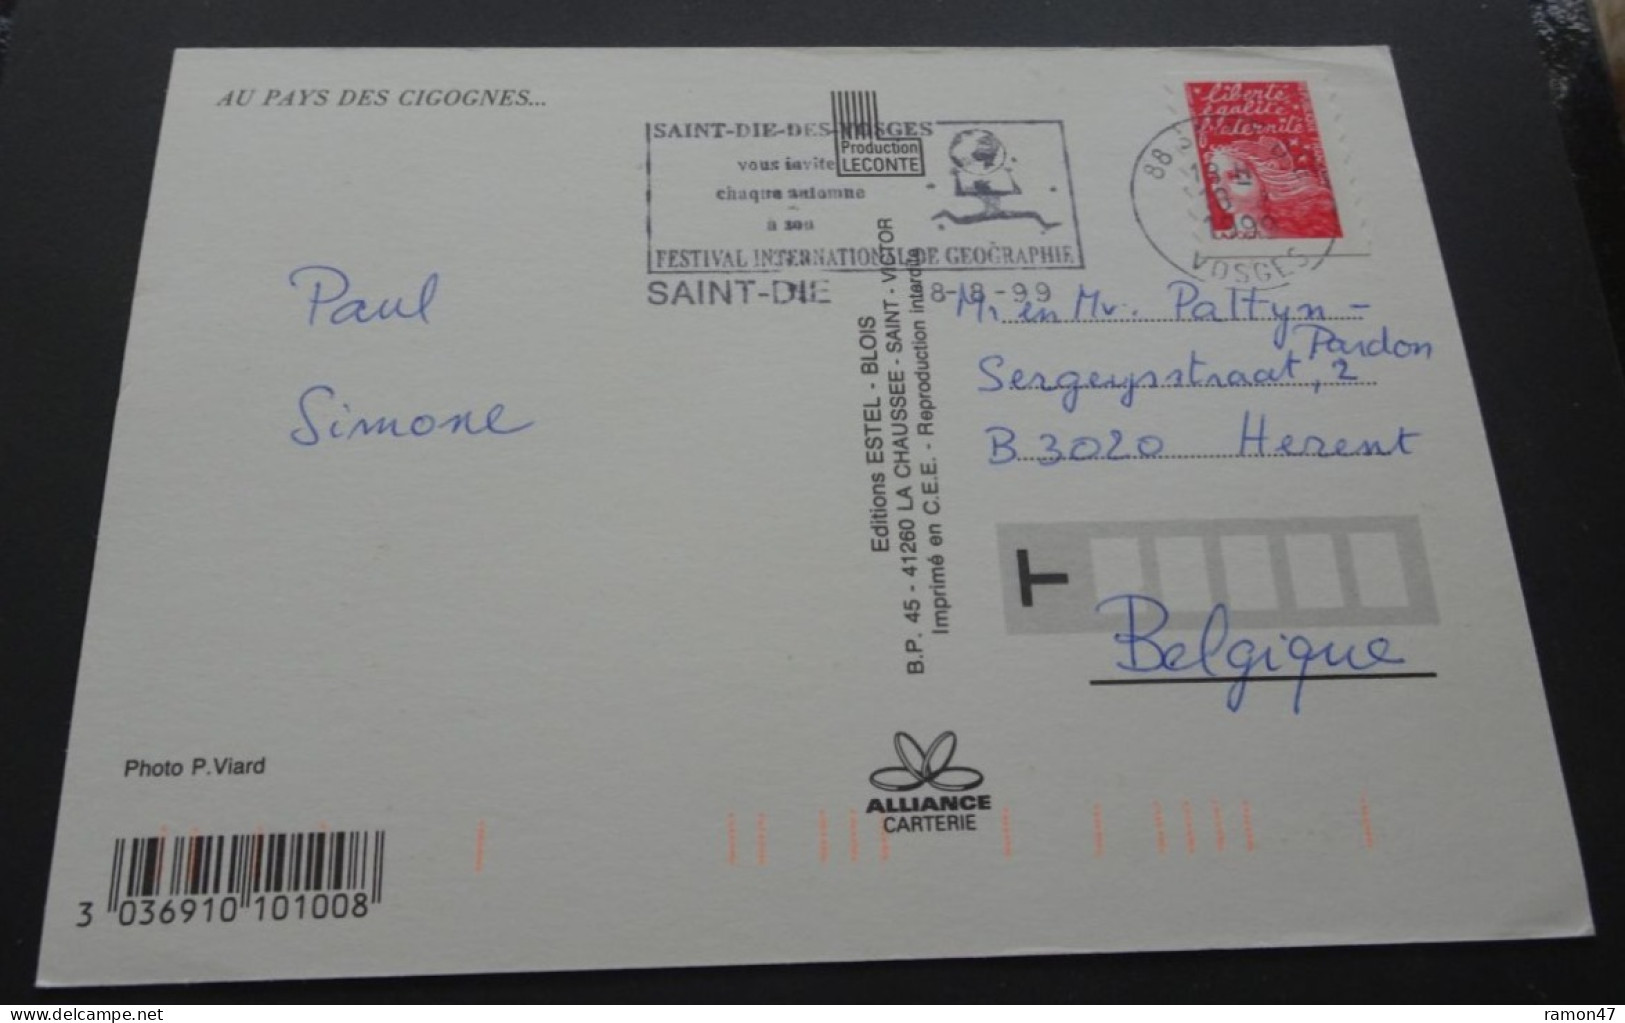 AU PAYS DES CIGOGNES...
SAINT-DIE-DES-VOSGES
vous invite
chaque automne
à son
FESTIVAL INTERNATIONAL DE GEOGRAPHIE
SAINT-DIE 8-8-99
Production
LECONTE
liberté
égalité
fraternité
88
VOSGES
Paul
Simone
M. en Mv. Pattyn -
Pardon
Sergeysstraat, 2
B 3020 Herent
Belgique
T
Editions ESTEL - BLOIS
B.P. 45 - 41260 LA CHAUSSEE - SAINT - VICTOR
Imprimé en C.E.E. - Reproduction interdite
Photo P.Viard
ALLIANCE
CARTERIE
3 036910 101008
ramon47